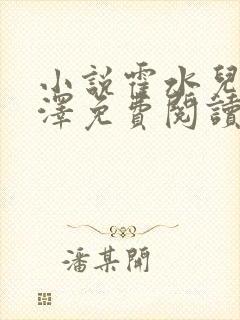 小說霍水兒
澤免費閱讀
潘某開